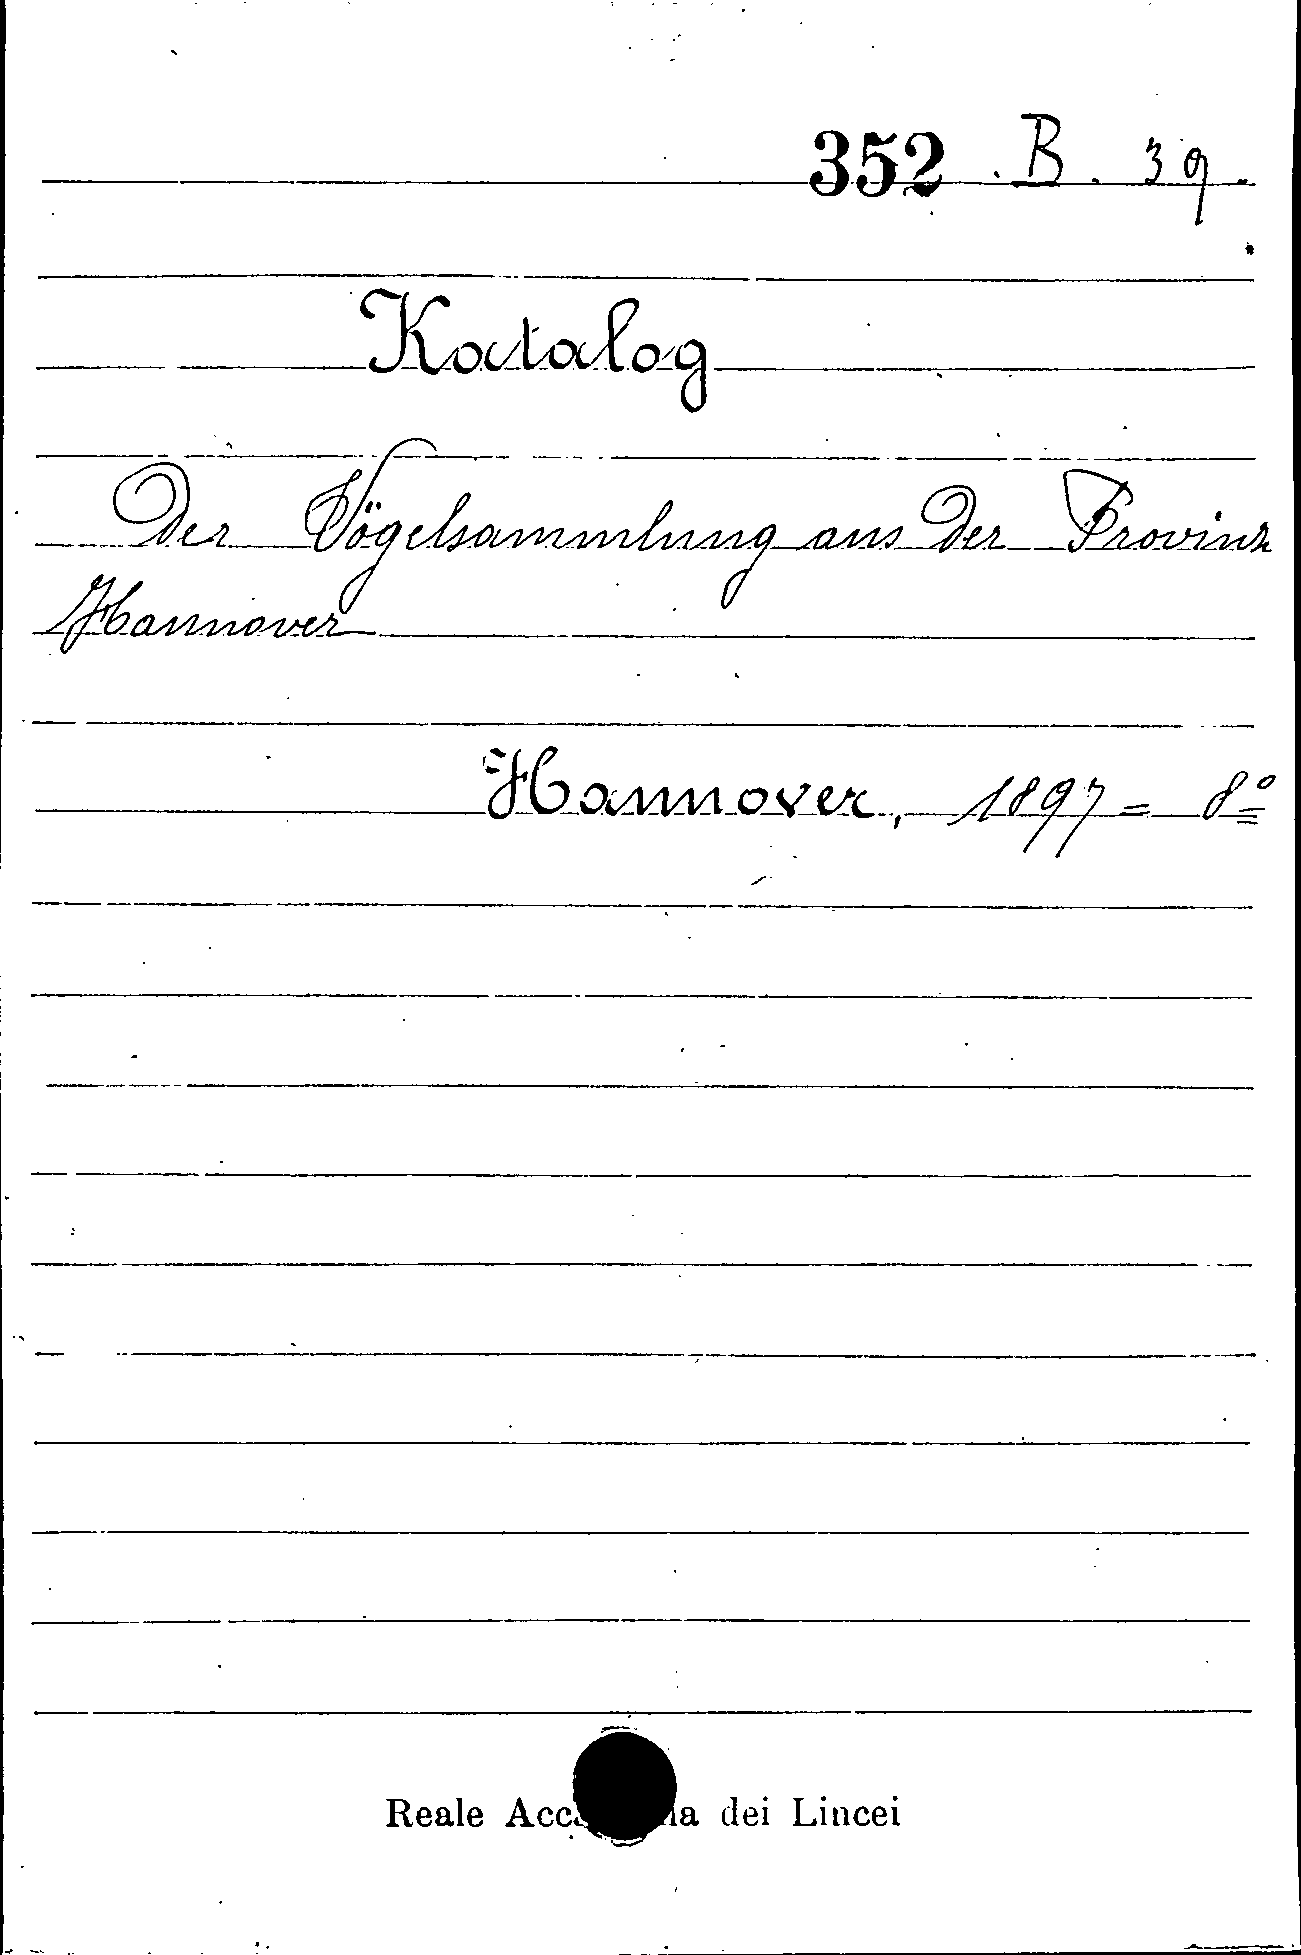 352 . B . 39 .
Katalog
Der Vögelsammlung aus Der Provinz
Hannover
Hannover, 1897 = 8º
Reale Acca ia dei Lincei